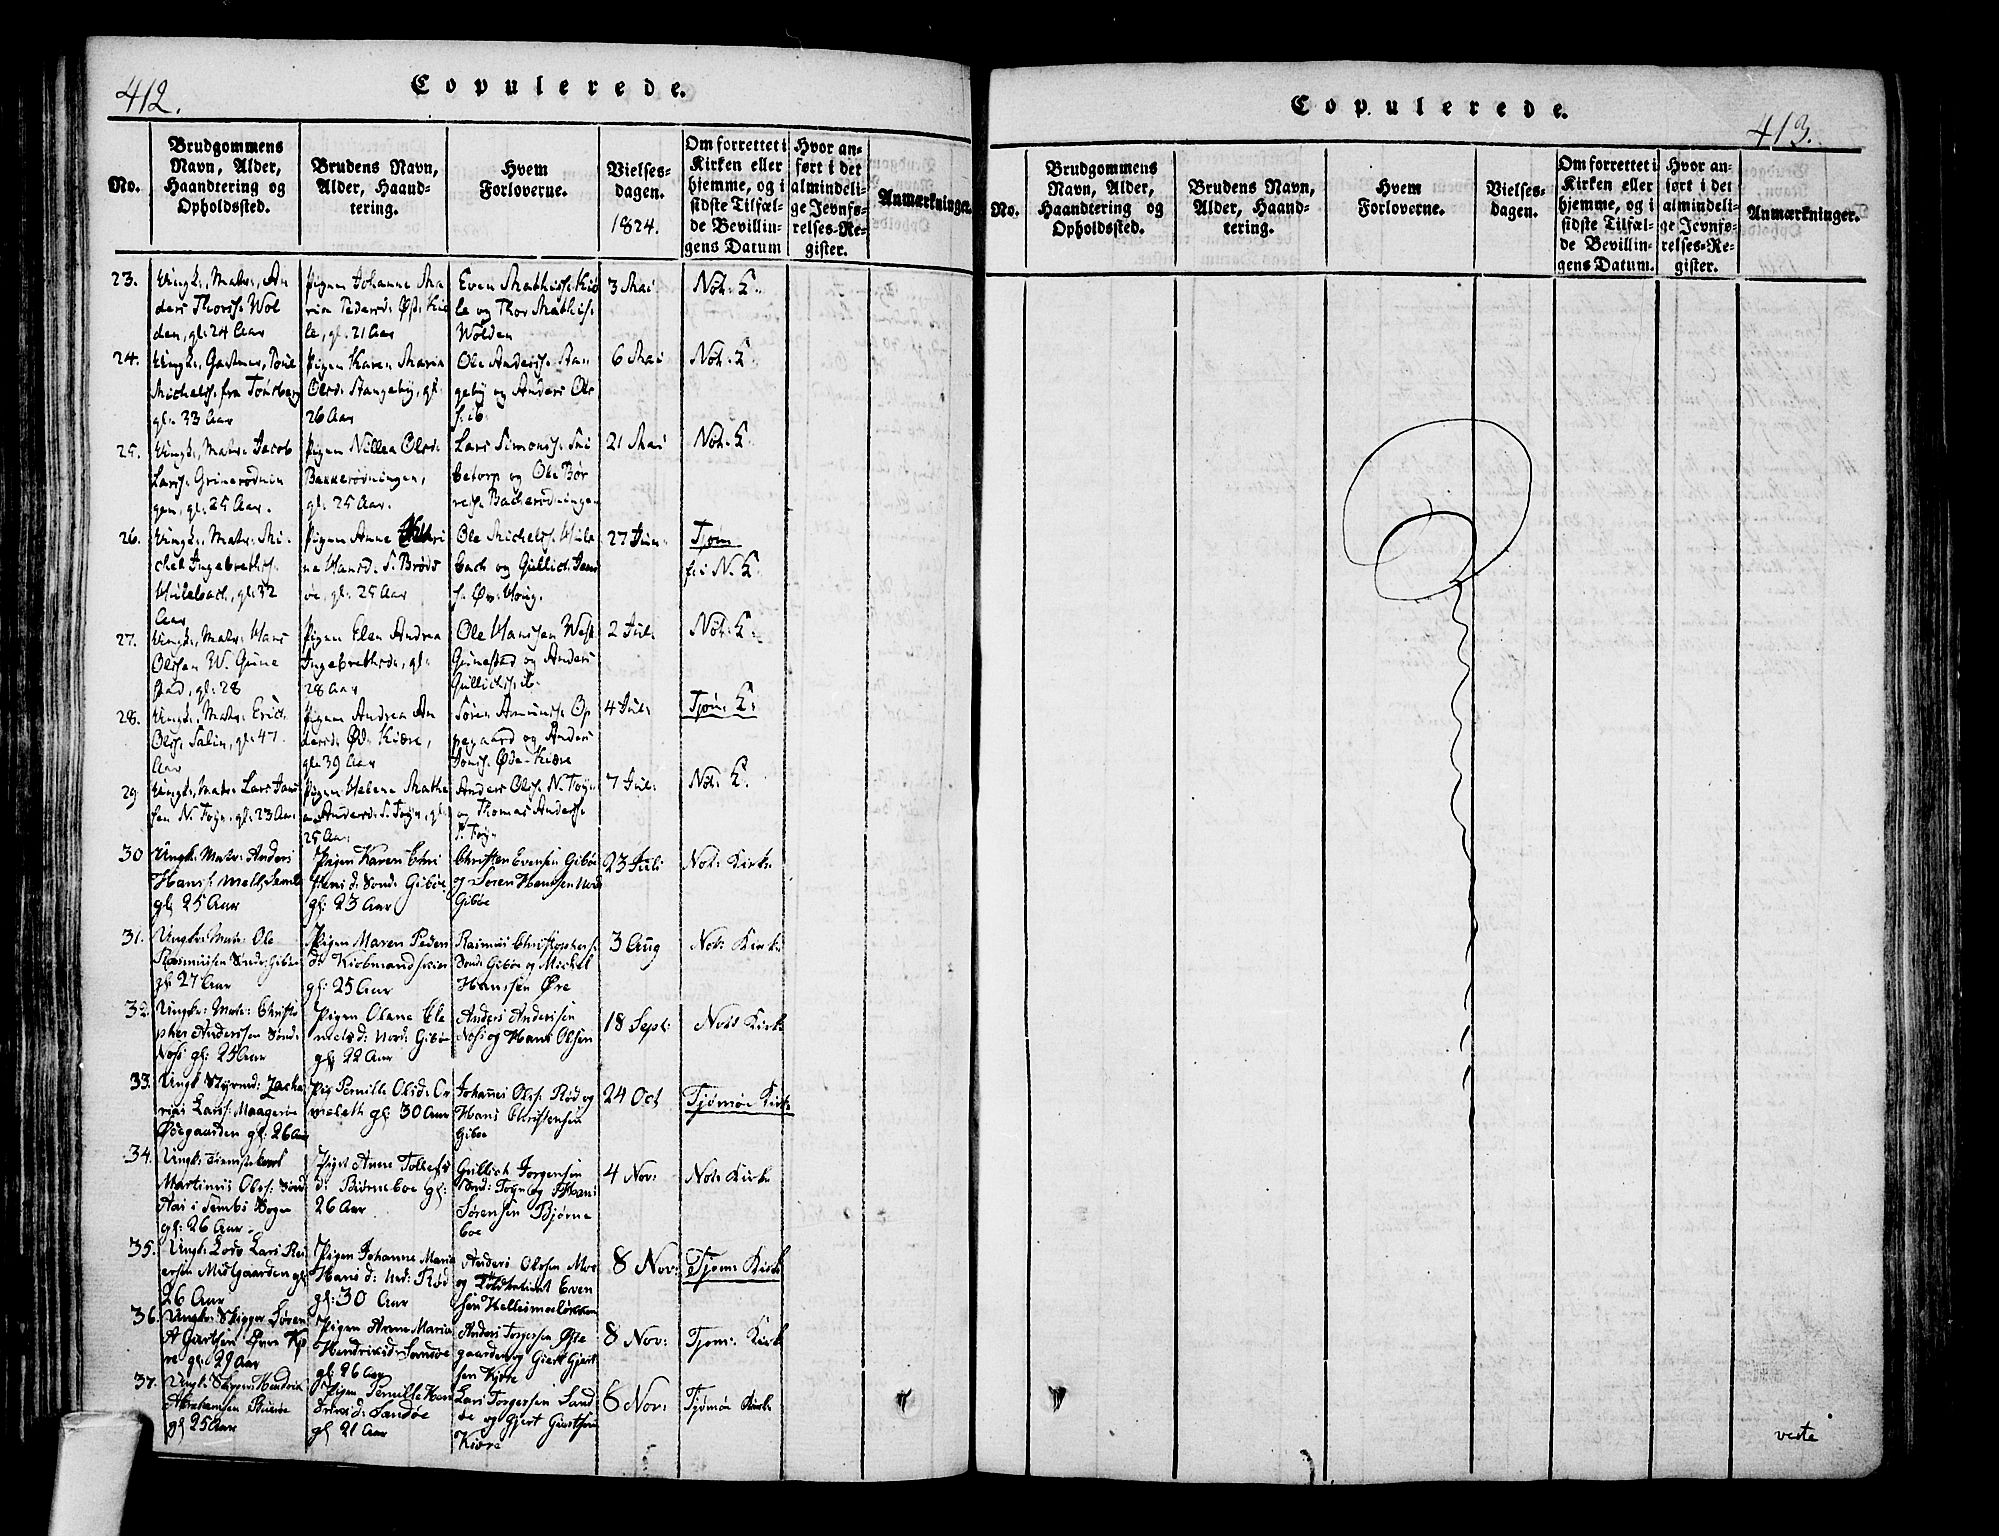 412.
Copulerede.
No.
Brudgommens
Navn, Alder,
Haandtering og
Opholdssted.
Brudens Navn,
Alder, Haand-
tering.
Hvem
Forloverne.
Vielses-
dagen.
1824.
Om forrettet i
Kirken eller
hjemme, og i
sidste Tilfæl-
de Bevillin-
gens Datum
Hvor an-
ført i det
almindeli-
ge Jevnfø-
relses-Re-
gister.
Anmærkninger.
23.
Ungk., Matr., An
ders Thorss. Wol
den, gl. 24 Aar
Pigen Johanne Ma
ria Pedersd.
le, gl. 21 Aar
Even Mathiss.
le og Thor Mathiss.
Wolden
3 Mai
Nøt: K.
24.
Michelss. fra Tønsberg
gl. 33 Aar
Pigen Karen Maria
Olsd. Stangeby, gl.
26 Aar
Ole Anderss. Stan
geby og Anders Ols
s. ib.
6 Mai
Nøt. K.
25.
Ungk., Matr. Jacob
Larss. Grinerødnin
gen, gl. 25 Aar.
Pigen Nillea Olsd.
Bakkerødningen,
gl. 25 Aar.
Lars Simonss. Smi
betorp og Ole Bør
ress. Backerødningen
21 Mai
Nøt. K.
26.
Ungk., Matr. Mi
chel Ingebrethss.
Hulebach, gl. 32
Aar
Pigen Anne
ne Hansd. S. Brøds
øe, gl. 25 Aar
Ole Michelss. Hule
bach og Gullich Jans
27 Jun.
Tjøm
f. i N. K.
27.
Ungk., Matr. Hans
Olssen W. Grine
stad, gl. 28
Pigen Elen Andrea
Ingebrethsd., gl.
28 Aar
Ole Hanssen West
Grinestad og Anders
Gullichss. ib.
2 Jul.
Nøt. K.
28.
Ungk., Matr. Erich
Olss. Salin, gl. 47.
Aar
Pigen Andrea An
dersd. Ød. Kiære,
gl. 39 Aar
Søren Amunss. Op
pegaard og Anders
Jonss. Øde-Kiære
4 Jul.
Tjøm. K.
29
Ungk., Matr. Lars Jans
sen N. Føyn, gl. 23 Aar.
Pigen Helene Mathe
a Andersd. S. Føyn, gl.
25 Aar.
Anders Olss. N. Føyn
og Thomas Anderss.
S. Føyn
7 Jul.
Nøt. K.
30
Ungk. Matr. Anders
Hans s. Mell. Semb
gl 25 Aar
Pigen Karen Chri
stens d. Sond. Gibøe
gl. 23 Aar
Christen Evensen Gibøe
og Søren Hanssen Nord
Gibøe
23 Juli
Not. Kirke
31.
Ungkr. Matr. Ole
Rasmussen Sønd. Gibøe
gl. 27 Aar
Pigen Maren Peder
d. Kiøbmandskiær
gl. 25 Aar
Rasmus Christophers.
Sond. Gibøe og Michel
Hanssen Øre
3 Aug
Not. Kirke
32.
Ungkr. Matr. Christo
pher Anderssen Sønd.
Nøss gl. 25 Aar
Pigen Olane Cle
metsd. Nord. Gibøe
gl. 22 Aar
Anders Andersen
Nøss og Hans Olsen
18 Sept.
Nøtt Kirke
33.
Ungk Styrmd. Zacha
rias Larss. Maagerøe
Ødegaarden gl. 26 Aar
Pig Pernille Olsd. Or
meleth gl. 30 Aar
Johannes Olss. Rød og
Hans Christensen
Gibøe
24 Oct
Tjømøe Kirke
34.
Ungk. Tienestekarl
Martinus Olss. Sønd
Aas i Sembs Sogn
gl. 26 Aar.
Pigen Anne Tollefs
d. Biørneboe gl.
26 Aar
Gullich Jørgensen
Sond. Føyn og Hans
Sørensen Bjørne
boe
4 Nov:
Not. Kirke
35.
Ungk. Lods Lars Rei
ersen Midgaarden gl.
26 Aar
Pigen Johanne Maria
Hans d. Ned. Rød
gl. 30 Aar
Anders Olssen Moe
Even
sen Hellesmoeløkken
8 Nov:
Tjøm. Kirke
36.
Ungkr. Skipper Søren
A Giertsen Øvre Kjæ
re gl. 29 Aar
Pigen Anne Maria
Hendrixd. Sandøe
gl. 26 Aar
Anders Jørgensen Øde
gaarden og Giert Gjert
sen Kjøre
8 Nov:
Tjøm. Kirk
37.
Ungk. Skipper Hendrik
Abrahamsen Bueroe
gl 25 Aar
Pigen Pernille Hen
drixsd. Sandøe
gl 21 Aar
Lars Torgersen Sand
øe og Gjert Giertsen
Kiøre
6 Nov:
Tjømøe Kirke
Copulerede.
413.
No.
Brudgommens
Navn, Alder,
Haandtering og
Opholdssted.
Brudens Navn,
Alder, Haand-
tering.
Hvem
Forloverne.
Vielses-
dagen.
Om forrettet i
Kirken eller
hjemme, og i
sidste Tilfæl-
de Bevillin-
gens Datum.
Hvor an-
ført i det
almindeli-
ge Jevnfø-
relses-Re-
gister.
Anmærkninger.